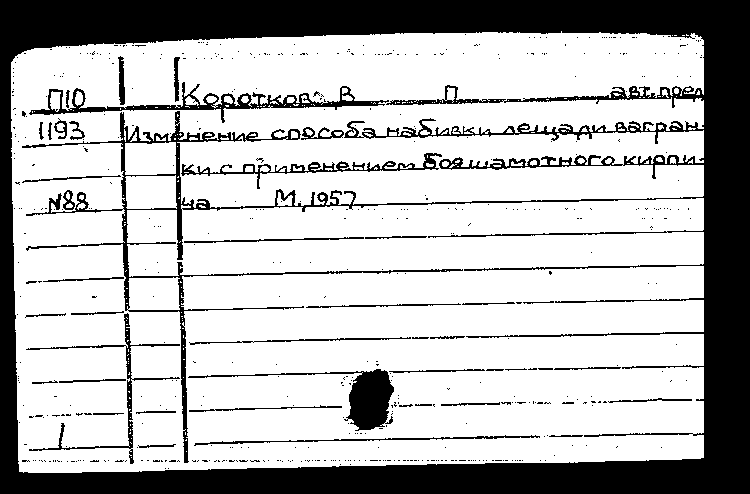 П10 Коротков В П авт. пред
1193 Изменение способа набивки лещади вагран-
ки с применением боя шамотного кирпи-
№88 ча М., 1957
1